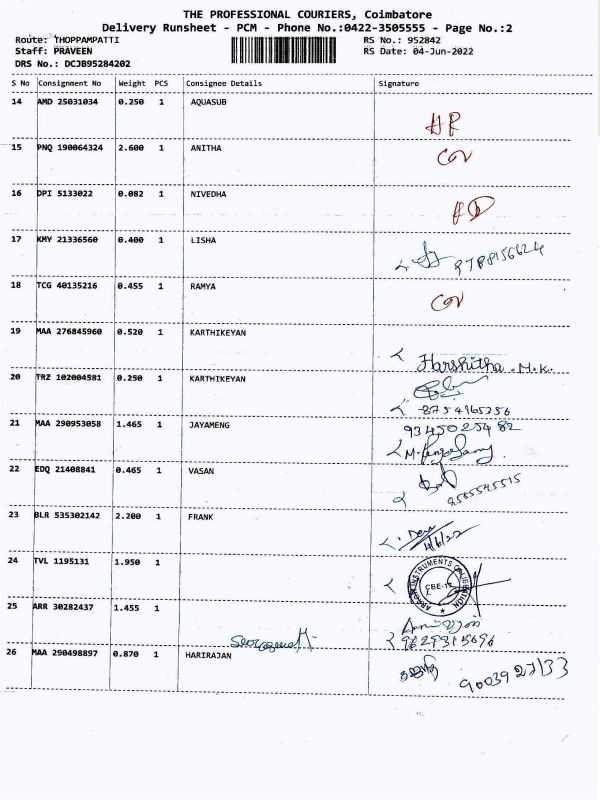 THE PROFESSIONAL COURIERS, Coimbatore
Delivery Runsheet - PCM - Phone No.:0422-3505555 - Page No.:2
Route: THOPPAMPATTI
Staff: PRAVEEN
DRS No.: DCJB95284202
RS No.: 952842
RS Date: 04-Jun-2022
S No Consignment No Weight PCS Consignee Details Signature
14 AMD 25031034 0.250 1 AQUASUB
15 PNQ 190064324 2.600 1 ANITHA
16 DPI 5133022 0.082 1 NIVEDHA
17 KMY 21336560 0.400 1 LISHA
9788156624
18 TCG 40135216 0.455 1 RAMYA
19 MAA 276845960 0.520 1 KARTHIKEYAN
Harshitha.M.K.
20 TRZ 102004581 0.250 1 KARTHIKEYAN
8754165256
21 MAA 290953058 1.465 1 JAYAMENG
9345025482
22 EDQ 21408841 0.465 1 VASAN
9585545515
23 BLR 535302142 2.200 1 FRANK
4/6/22
24 TVL 1195131 1.950 1
25 ARR 30282437 1.455 1
9629315696
26 MAA 290498897 0.870 1 HARIRAJAN
9003927133